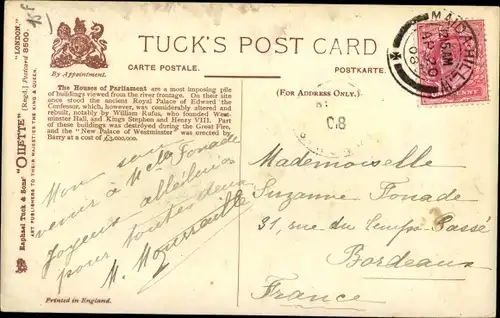 TUCK'S POST CARD
CARTE POSTALE.
POSTKARTE.
By Appointment.
(FOR ADDRESS ONLY.)
The Houses of Parliament are a most imposing pile
of buildings viewed from the river frontage. On their site
once stood the ancient Royal Palace of Edward the
Confessor, which, however, was considerably altered and
rebuilt, notably by William Rufus, who founded West-
minster Hall, and Kings Stephen and Henry VIII. Part
of these buildings was destroyed during the Great Fire,
and the "New Palace of Westminster" was erected by
Barry at a cost of £3,000,000.
Mon
venir à Mlle Fonade
Joyeux alleluia
pour toutes deux
M.
Printed in England.
Raphael Tuck & Sons' "OILETTE" [Regd.] Postcard 8500. "LONDON."
ART PUBLISHERS TO THEIR MAJESTIES THE KING & QUEEN.
MAIDA HILL.W
AP 20
08
08
Mademoiselle
Suzanne Fonade
31, rue du Temps Passé
Bordeaux
France